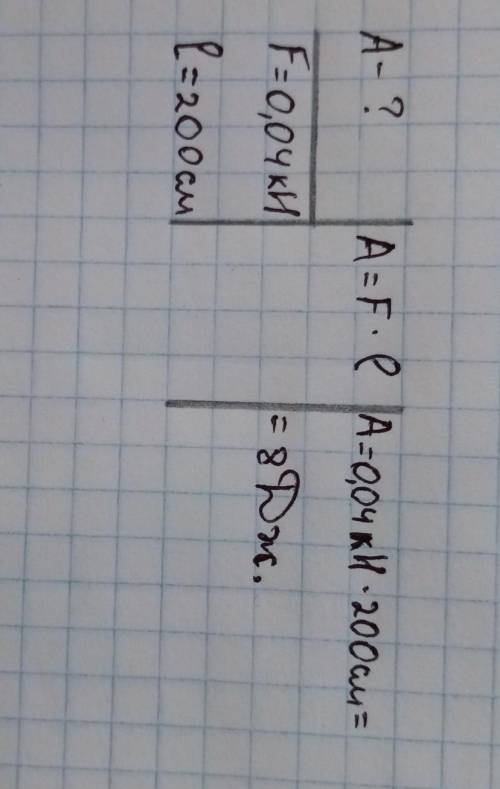 A - ?
F = 0,04 кН
l = 200 см
A = F · l
A = 0,04 кН · 200 см =
= 8 Дж.